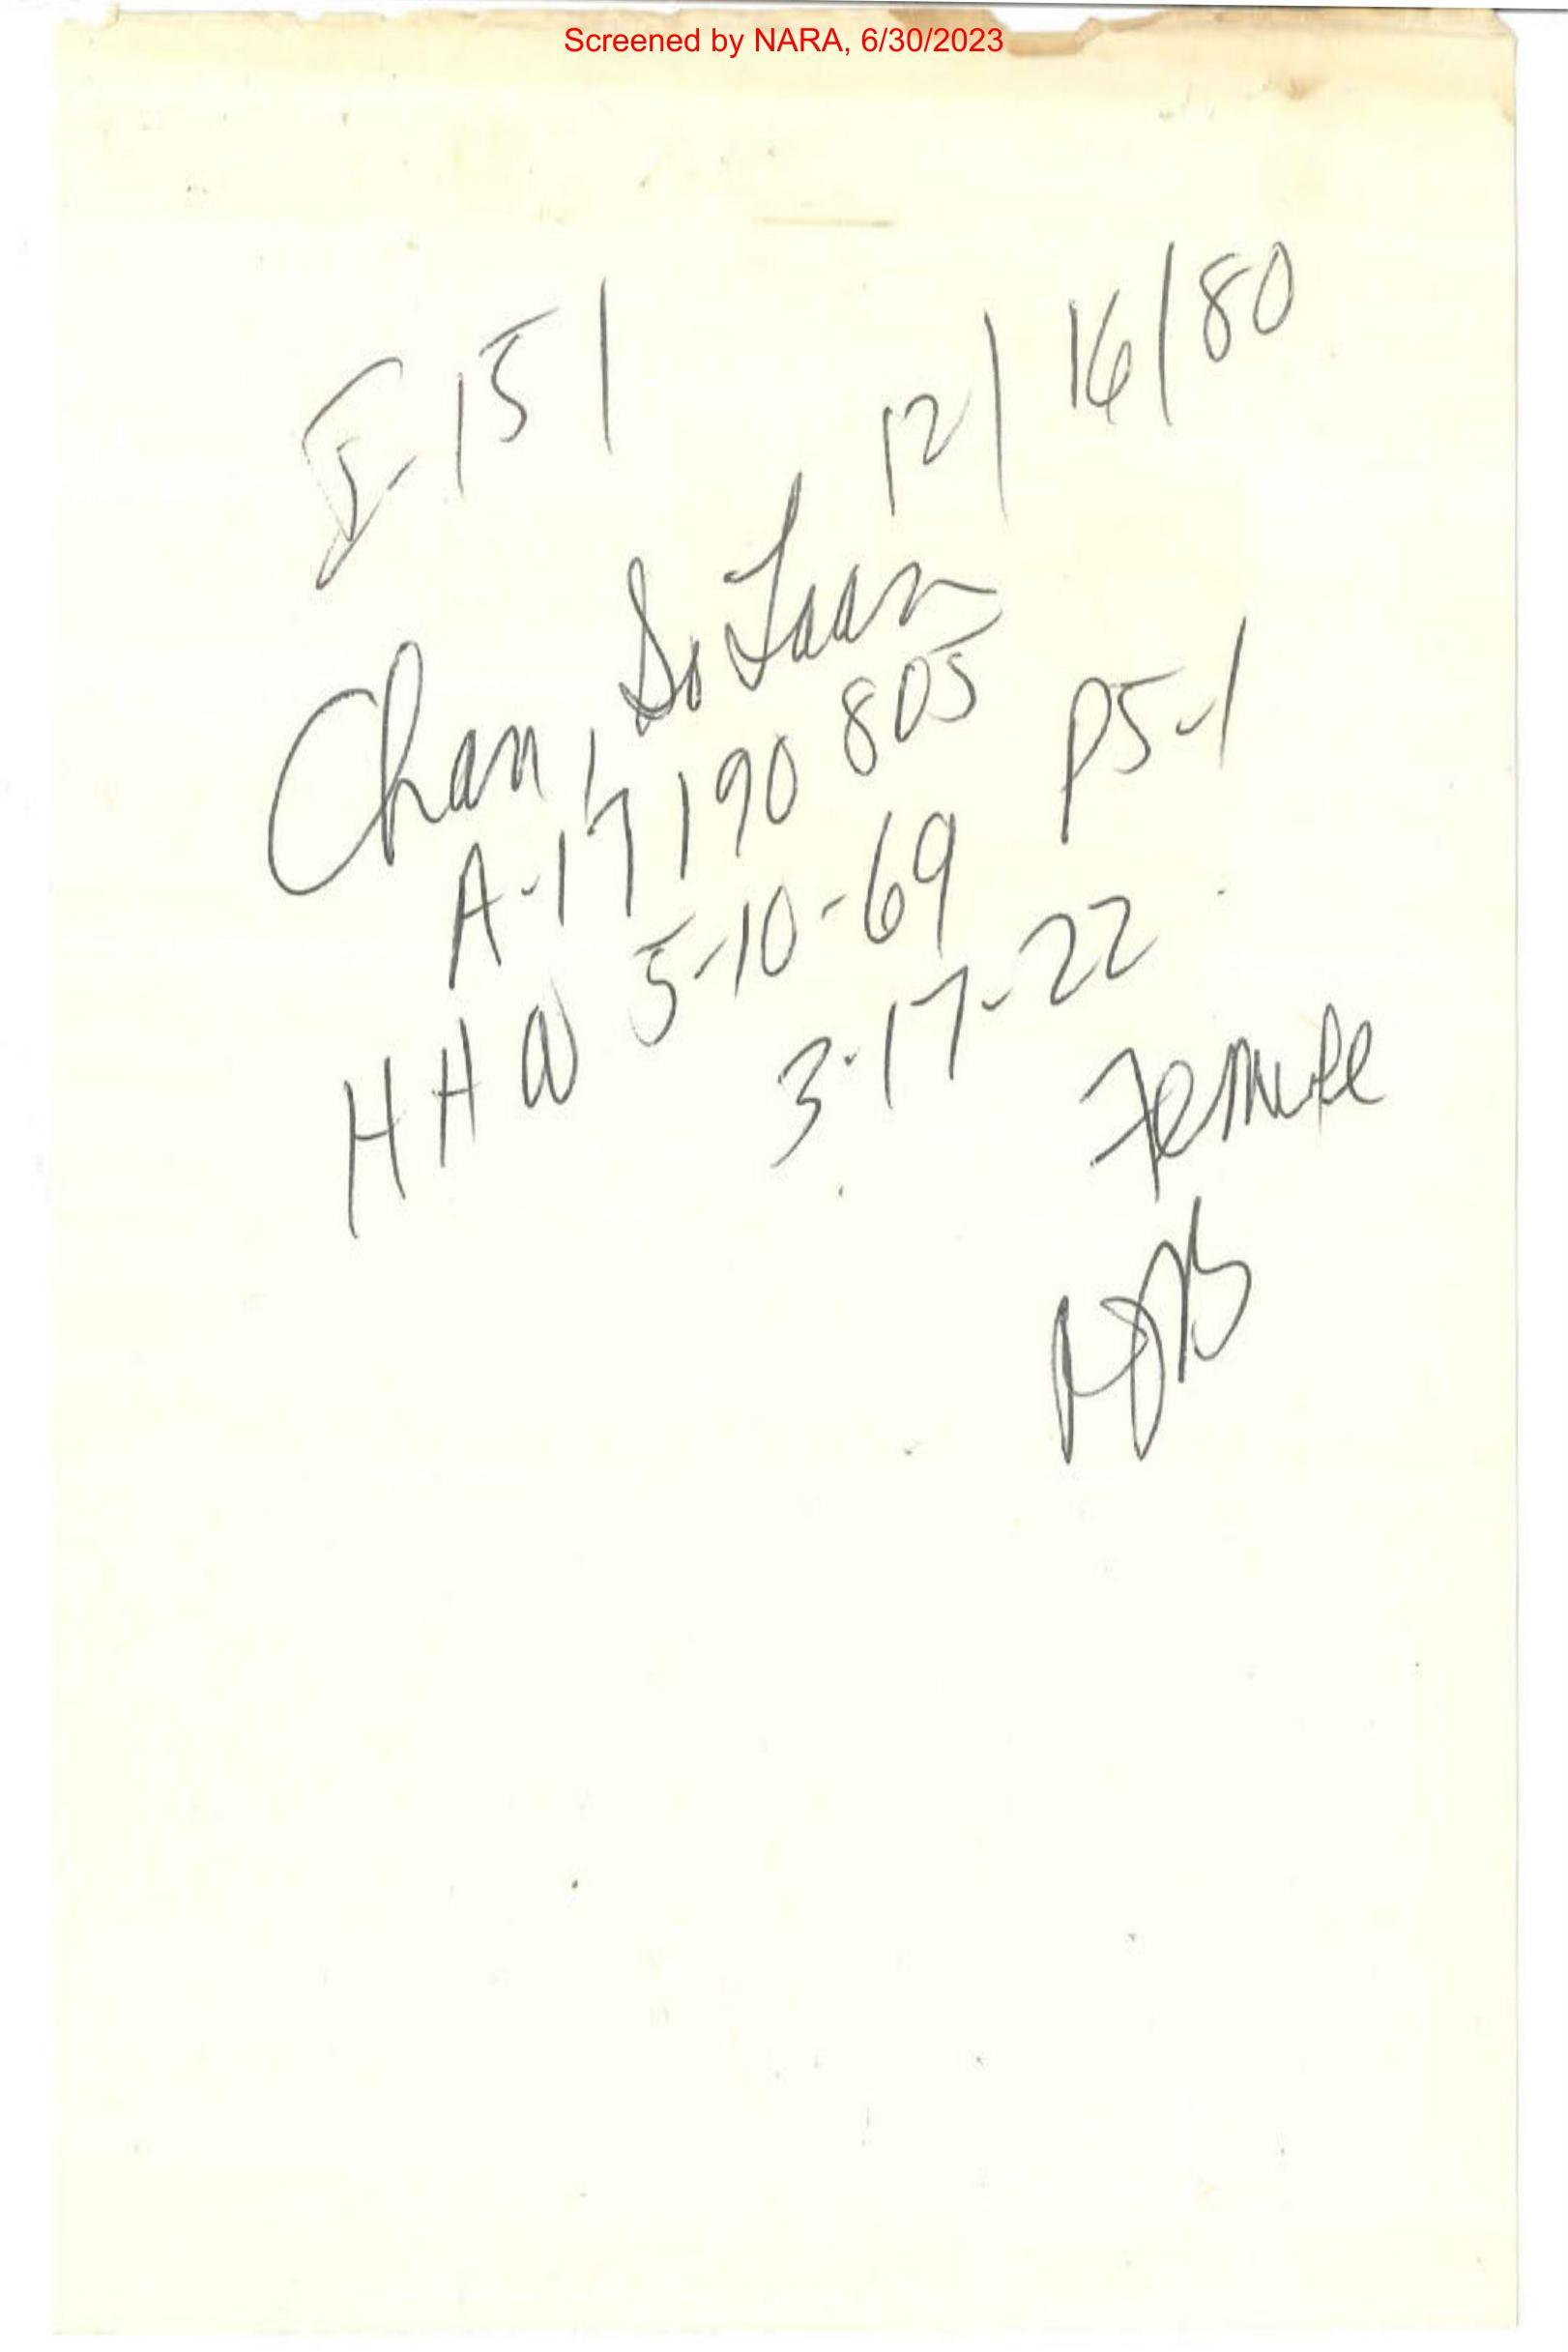 Screened by NARA, 6/30/2023
I-151 12/16/80
Chan, So Faan
A-17 190 805 P5-1
HHW 5-10-69
3-17-22
Female